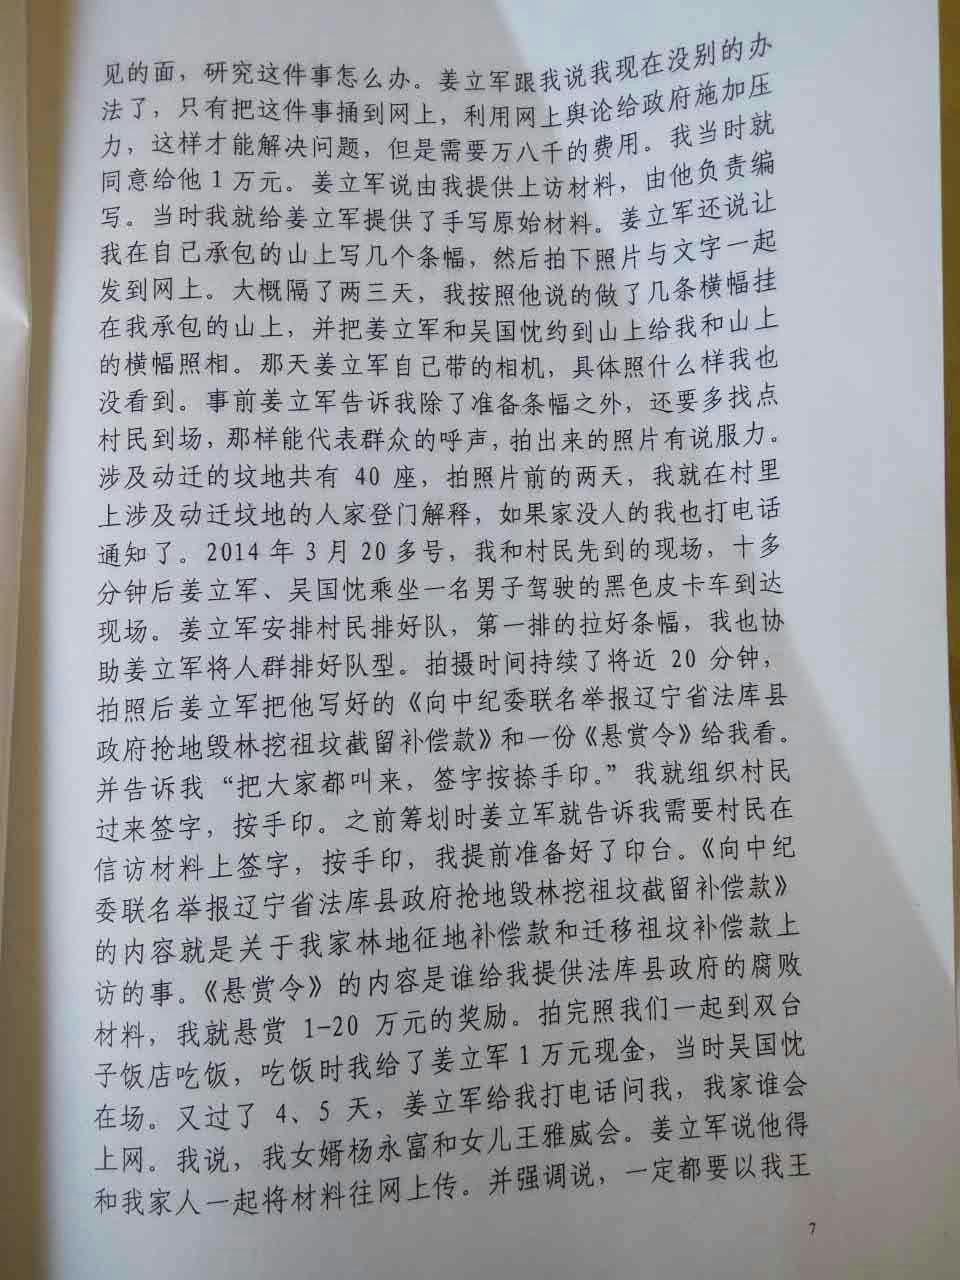 见的面，研究这件事怎么办。姜立军跟我说我现在没别的办
法了，只有把这件事捅到网上，利用网上舆论给政府施加压
力，这样才能解决问题，但是需要万八千的费用。我当时就
同意给他1万元。姜立军说由我提供上访材料，由他负责编
写。当时我就给姜立军提供了手写原始材料。姜立军还说让
我在自己承包的山上写几个条幅，然后拍下照片与文字一起
发到网上。大概隔了两三天，我按照他说的做了几条横幅挂
在我承包的山上，并把姜立军和吴国忱约到山上给我和山上
的横幅照相。那天姜立军自己带的相机，具体照什么样我也
没看到。事前姜立军告诉我除了准备条幅之外，还要多找点
村民到场，那样能代表群众的呼声，拍出来的照片有说服力。
涉及动迁的坟地共有 40 座，拍照片前的两天，我就在村里
上涉及动迁坟地的人家登门解释，如果家没人的我也打电话
通知了。2014 年 3 月 20 多号，我和村民先到的现场，十多
分钟后姜立军、吴国忱乘坐一名男子驾驶的黑色皮卡车到达
现场。姜立军安排村民排好队，第一排的拉好条幅，我也协
助姜立军将人群排好队型。拍摄时间持续了将近 20 分钟，
拍照后姜立军把他写好的《向中纪委联名举报辽宁省法库县
政府抢地毁林挖祖坟截留补偿款》和一份《悬赏令》给我看。
并告诉我“把大家都叫来，签字按捺手印。”我就组织村民
过来签字，按手印。之前筹划时姜立军就告诉我需要村民在
信访材料上签字，按手印，我提前准备好了印台。《向中纪
委联名举报辽宁省法库县政府抢地毁林挖祖坟截留补偿款》
的内容就是关于我家林地征地补偿款和迁移祖坟补偿款上
访的事。《悬赏令》的内容是谁给我提供法库县政府的腐败
材料，我就悬赏 1-20 万元的奖励。拍完照我们一起到双台
子饭店吃饭，吃饭时我给了姜立军1万元现金，当时吴国忱
在场。又过了 4、5 天，姜立军给我打电话问我，我家谁会
上网。我说，我女婿杨永富和女儿王雅威会。姜立军说他得
和我家人一起将材料往网上传。并强调说，一定都要以我王
7